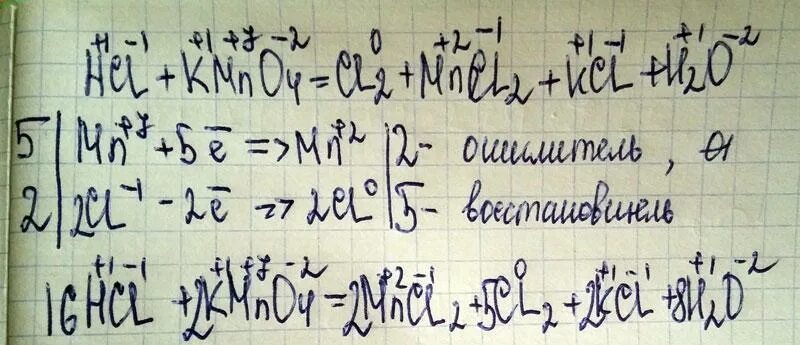 H⁺¹Cl⁻¹ + K⁺¹Mn⁺⁷O₄⁻² = Cl₂⁰ + Mn⁺²Cl₂⁻¹ + K⁺¹Cl⁻¹ + H₂⁺¹O⁻²
5 | Mn⁺⁷ + 5ē => Mn⁺² | 2 - окислитель,
2 | 2Cl⁻¹ - 2ē => 2Cl⁰ | 5 - восстановитель
16H⁺¹Cl⁻¹ + 2K⁺¹Mn⁺⁷O₄⁻² = 2Mn⁺²Cl₂⁻¹ + 5Cl₂⁰ + 2K⁺¹Cl⁻¹ + 8H₂⁺¹O⁻²